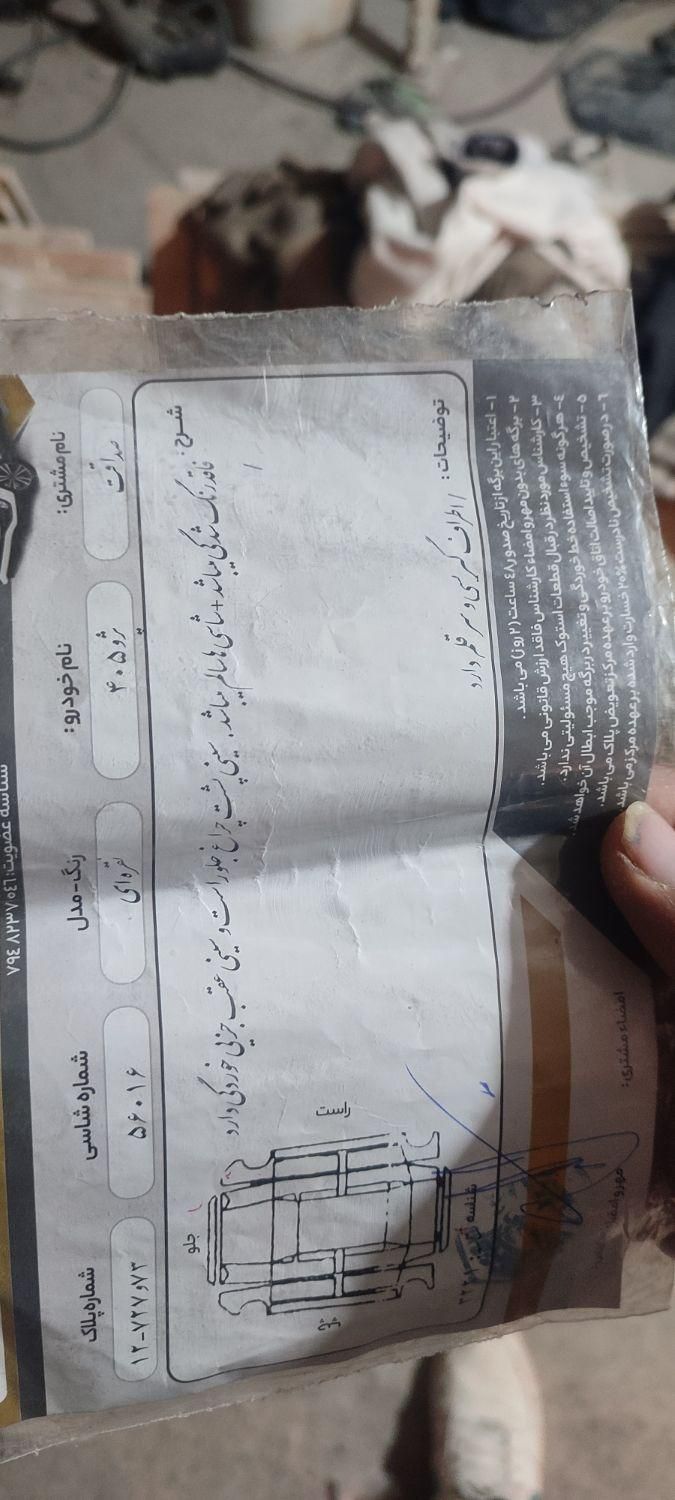 شناسه عضویت: ۷۹٤ ۸۲۳۷ ٥٤٦
نام مشتری: صداقت
نام خودرو: پژو ۴۰۵
رنگ-مدل نقره‌ای
شماره شاسی ۵۶۰۱۶
شماره پلاک ۱۲-۷۲۷و۷۳
شرح: فاقد رنگ شدگی میباشد + شاسی ها سالم میباشد. سینی پشت چراغ جلو راست و سینی عقب جزئی خوردگی دارد
جلو
راست
چپ
توضیحات: اطراف گلگیر و سر قلم دارد
۱- اعتبار این برگه از تاریخ صدور ٤٨ ساعت (۲ روز) می باشد.
۲- برگه های بدون مهر و امضاء کارشناس فاقد ارزش قانونی می باشد.
۳- کارشناس مورد نظر در قبال قطعات استوک هیچ مسئولیتی ندارد.
٤- هرگونه سوء استفاده خط خوردگی و تغییر در برگه موجب ابطال آن خواهد شد.
۵- تشخیص و تایید اصالت اتاق خودرو بر عهده مرکز تعویض پلاک می باشد.
۶- در صورت تشخیص نادرست ۲۰% خسارت وارد شده بر عهده مرکز می باشد
امضاء مشتری: